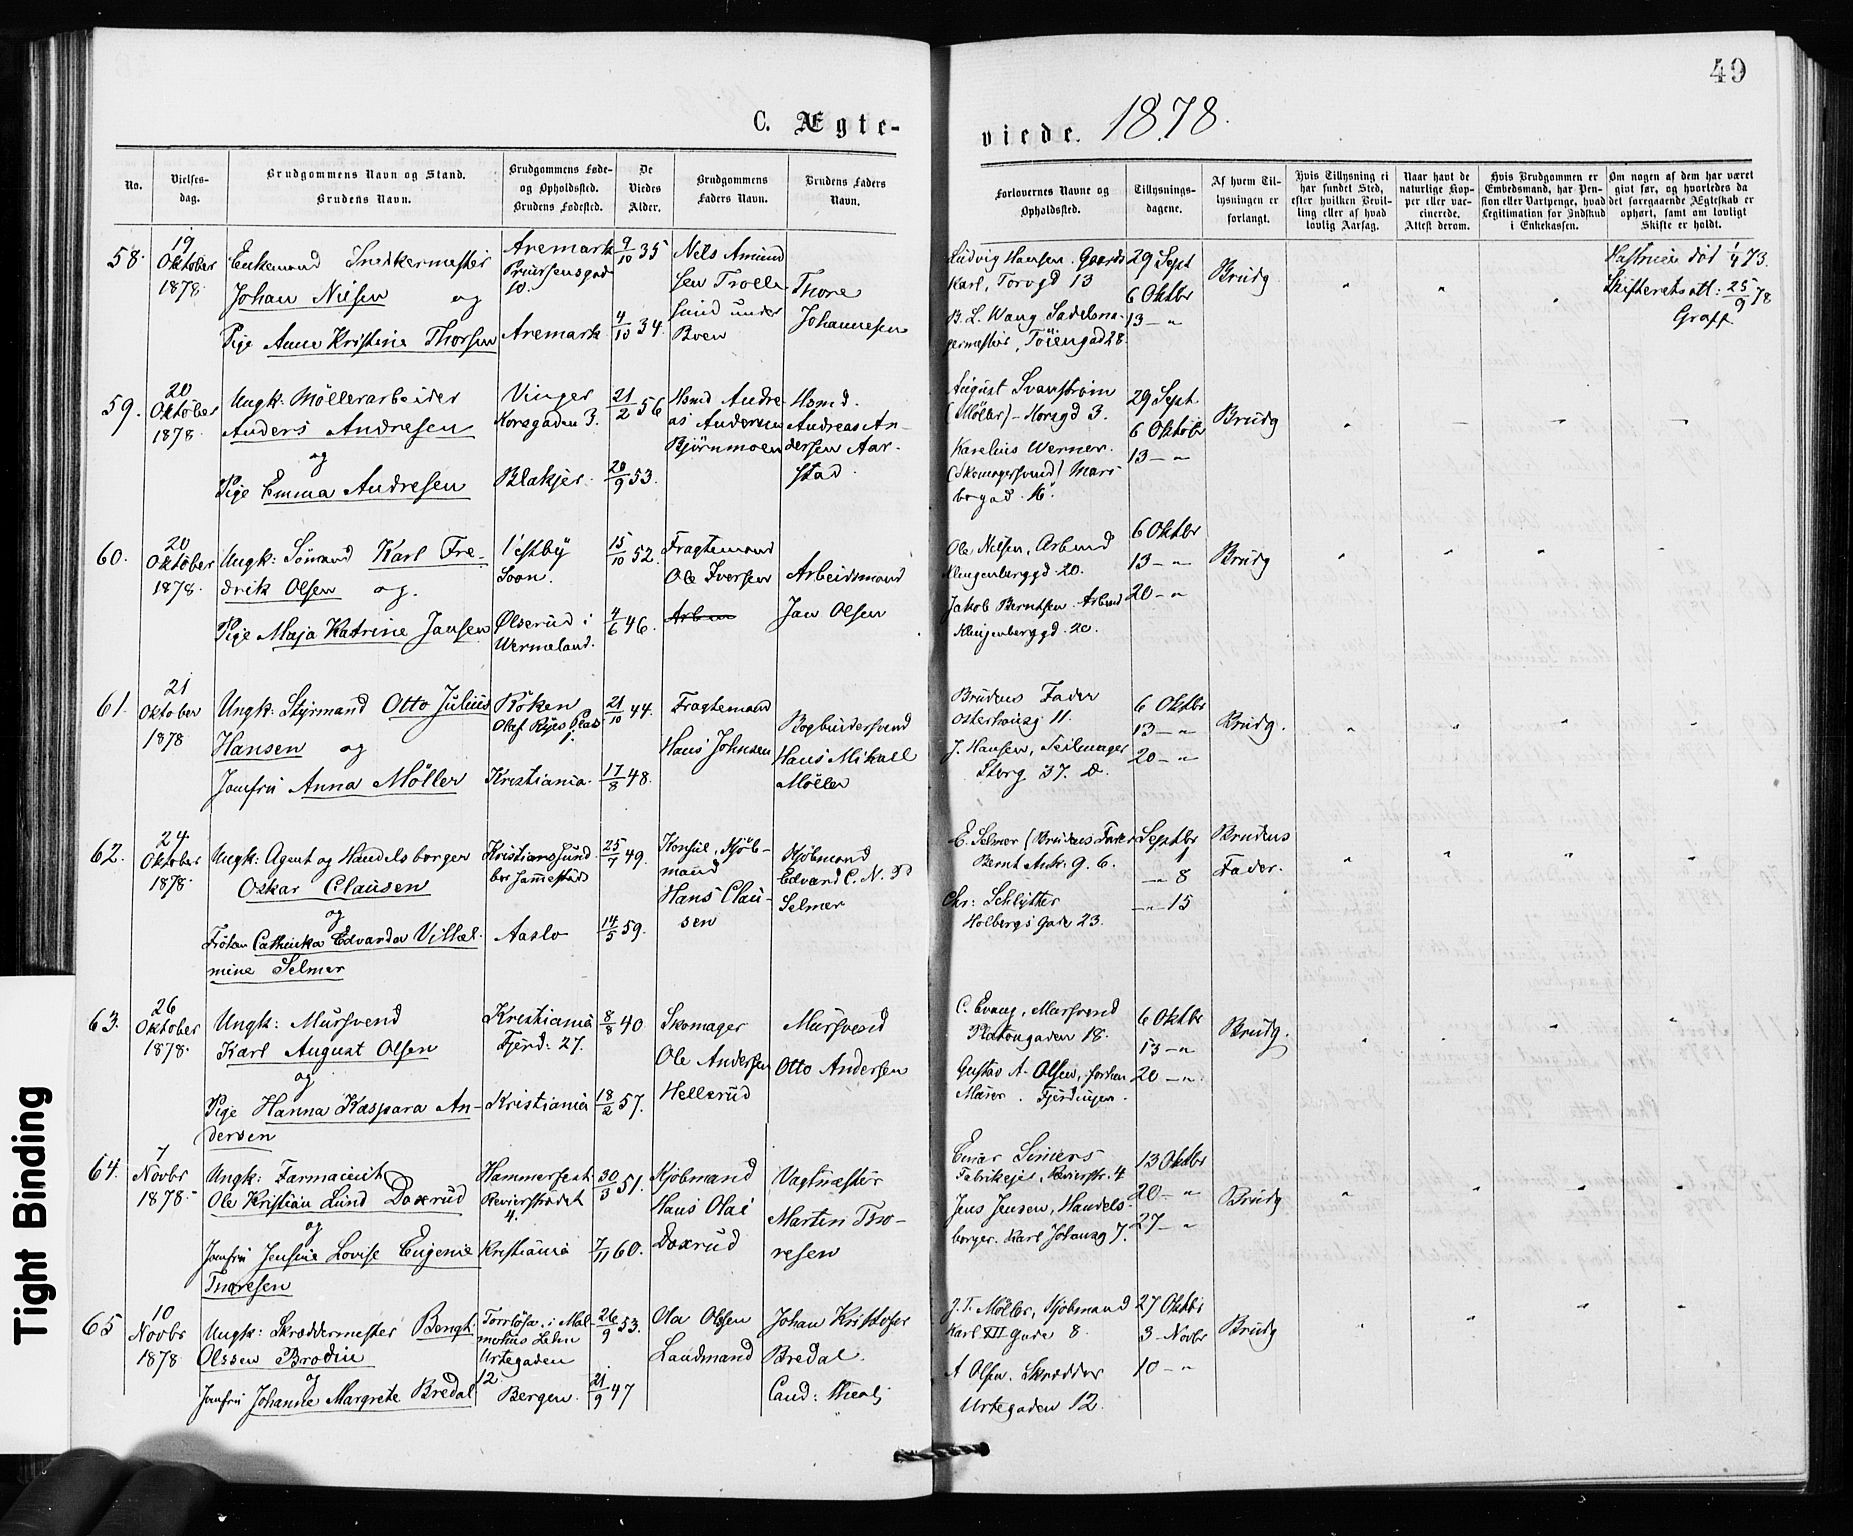 49
C. Ægte-
viede. 1878.
No.
Vielses-
dag.
Brudgommens Navn og Stand.
Brudens Navn.
Brudgommens Føde-
og Opholdssted.
Brudens Fødested.
De
Viedes
Alder.
Brudgommens
Faders Navn.
Brudens Faders
Navn.
Forlovernes Navne og
Opholdssted.
Tillysnings-
dagene.
Af hvem Til-
lysningen er
forlangt.
Hvis Tillysning ei
har fundet Sted,
efter hvilken Bevil-
ling eller af hvad
lovlig Aarsag.
Naar havt de
naturlige Kop-
per eller vac-
cinerede.
Attest derom.
Hvis Brudgommen er
Embedsmand, har Pen-
sion eller Vartpenge, hvad
Legitimation for Indskud
i Enkekassen.
Om nogen af dem har været
gift før, og hvorledes da
det foregaaende Ægteskab er
ophørt, samt om lovligt
Skifte er holdt.
58.
19
Oktober
1878.
Enkemand Snedkermester
Johan Nilsen og
Pige Anne Kristine Thorsen
Aremark
10.
Aremark
9/10 35
4/10 34.
Nils Amund
sen Troll
sund under
Boen
Thore
Johannesen
Ludvig Hansen. Gaards
Karl, Torvgd 13
B. L. Wang Sadelma-
germester, Töiengad 28.
29 Sept
6 Oktbr
13 — "
Brudg
død 1/4 73.
Skifteretsatt: 25/9 78
Graff
59.
20
Oktober
1878.
Ungk: Möllerarbeider
Anders Andresen
og
Pige Emma Andresen
Vinger
Korsgaden 3.
Blakjer.
21/2 56
20/9 53.
Hsmd Andre-
as Andersen
Björnmoen
Hsmd.
Andreas An-
dersen Aar-
stad.
August Svanström
(Möller) - Korsgd 3.
Karelius Werner.
(Skomagersvend) Mari-
bogad. 16.
29 Sept.
6 Oktobr
13 — "
Brudg
60.
20
Oktober
1878.
Ungk: Sömand Karl Fre-
drik Olsen og.
Pige Maja Katrine Jansen
Vestby
Soon.
Ølserud i
Wermeland.
15/10 52.
4/6 46.
Fragtemand
Ole Iversen
Arbeidsmand
Jan Olsen
Ole Nilsen, Arbmd
Klingenberggd. 20.
Jakob Berntsen. Arbmd
Klingenberggd. 20.
6 Oktbr
13 — "
20 — "
Brudg
61.
21
Oktober
1878
Ungk: Styrmand Otto Julius
Hansen og
Jomfru Anna Möller
Röken
Olaf Ryes Plads
Kristiania.
21/10 44.
17/8 48.
Fragtemand
Hans Johnsen
Bogbindersvend
Hans Mikall
Möller
Brudens Fader
Osterhausg 11.
J. Hansen, Seilmager
Storg 37. D.
6 Oktbr
13 — "
20 — "
Brudg.
62.
24
Oktober
1878
Ungk: Agent og Handelsborger
Oskar Clausen
og
Frøken Cathinka Edvarda Villel-
mine Selmer
Kristianssund
bor sammesteds
Aaslo
25/7 49.
14/5 59.
Konsul, Kjöb-
mand
Hans Clau-
sen
Kjöbmand
Edvard C. N. P
Selmer
E. Selmer (Brudens Fader
Bernt Ankr: g. 6.
Chr: Schlytter
Holbergs Gade 23.
Septbr 1
— " 8
— " 15
Brudens
Fader.
63.
26
Oktober
1878.
Ungk: Mursvend
Karl August Olsen
og
Pige Hanna Kaspara An-
dersen
Kristiania
Fjerd: 27.
Kristiania
8/8 40.
18/2 57.
Skomager
Ole Andersen
Hellerud
Mursvend
Otto Andersen
C. Evang, Mursvend
Platougaden 18.
Gustav A. Olsen,
Murer. Fjerdingen.
6 Oktbr
13 — "
20 — "
Brudg.
64.
7
Novbr
1878.
Ungk: Farmaceut
Ole Kristian Lund Doxrud
og
Jomfru Jensine Lovise Eugenie
Thoresen
Hammerfest
Revierstrædet
4.
Kristiania
30/3 51.
7/11 60.
Kjöbmand
Hans Olai
Doxrud
Vagtmester
Martin Tho-
resen
Einar Simers
Fabrikeier, Revierstr. 4
Jens Jensen, Handels-
borger. Karl Johansg 7.
13 Oktbr
20 — "
27 — "
Brudg
65
10
Novbr
1878
Ungk: Skræddermester Bengt
Olssen Brodin
og
Jomfru Johanne Margrete Bredal
Torrlösa, i Mal-
möhus Lehn
Urtegaden
12.
Bergen.
26/9 53.
21/9 47
Ola Olssen
Landmand
Johan Kristofer
Bredal.
Cand: theolj
J. T. Möller, Kjöbmand
Karl XII Gade 8.
A Olsen. Skrædder
Urtegaden 12.
27 Oktbr
3 — Novbr
10 — "
Brudg
Tight Binding